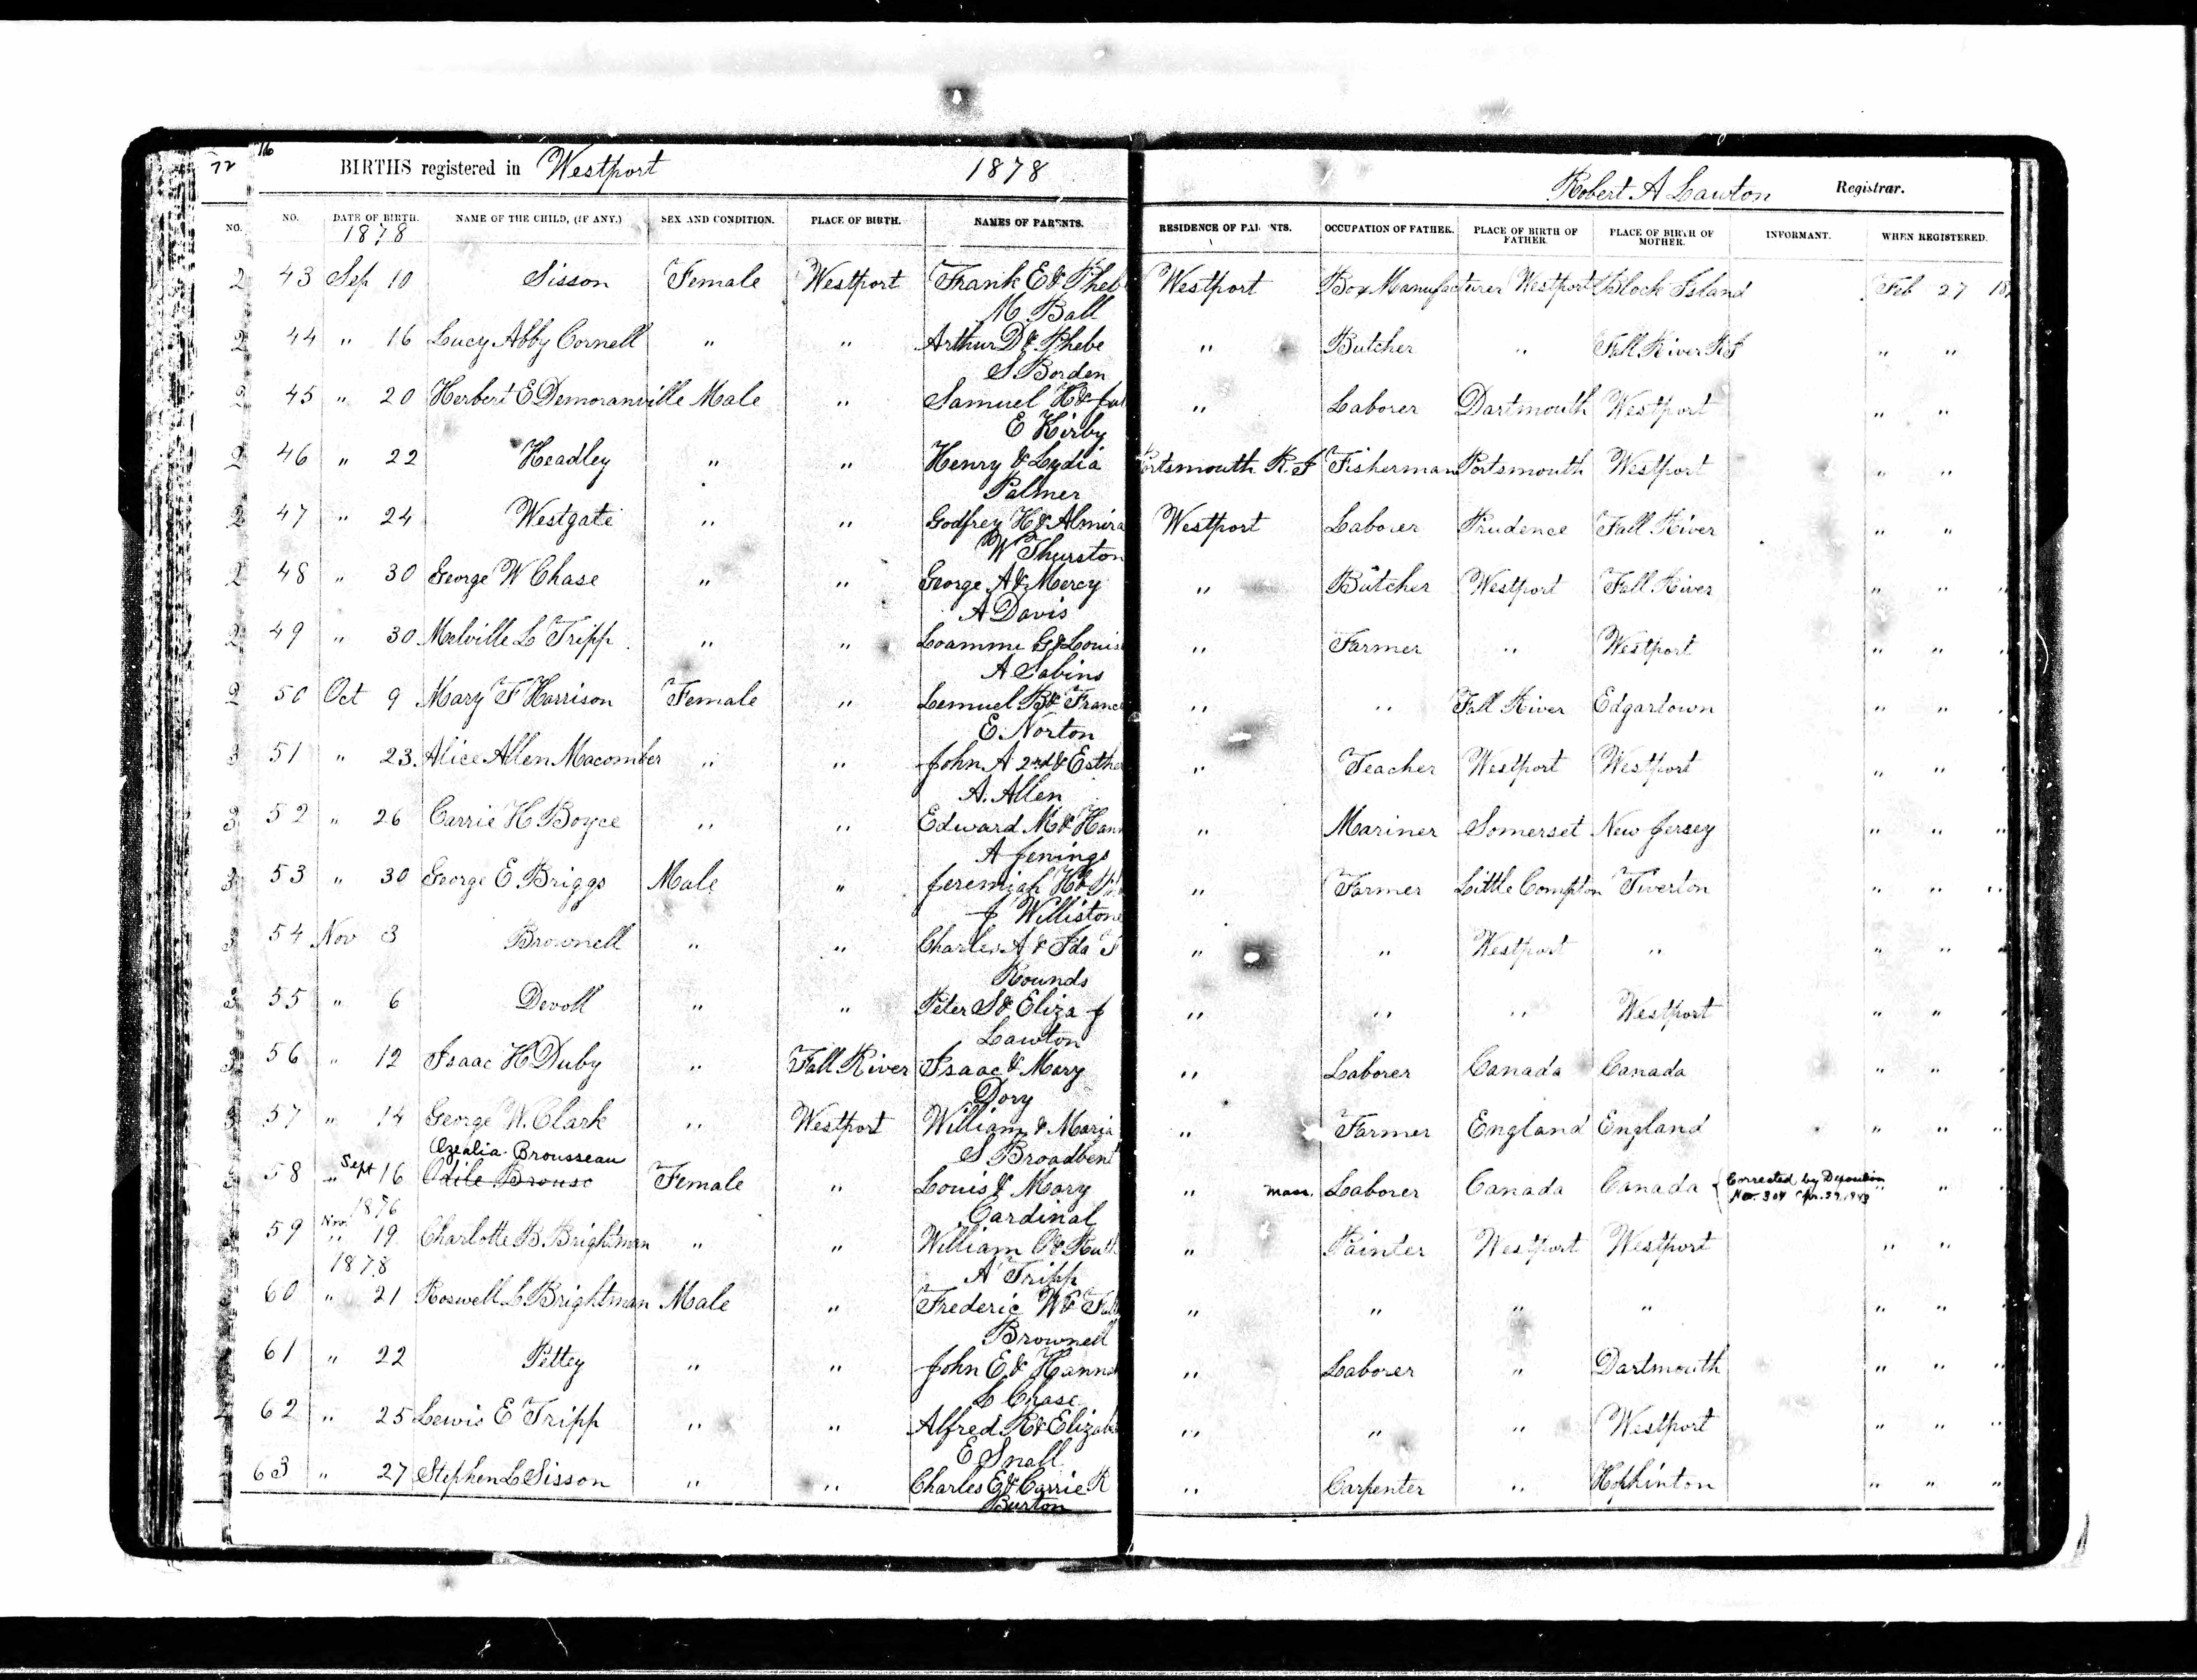 72 16 BIRTHS registered in Westport 1878 Robert A Lawton Registrar.
NO. NO. DATE OF BIRTH. NAME OF THE CHILD, (IF ANY.) SEX AND CONDITION. PLACE OF BIRTH. NAMES OF PARENTS. RESIDENCE OF PARENTS. OCCUPATION OF FATHER. PLACE OF BIRTH OF FATHER. PLACE OF BIRTH OF MOTHER. INFORMANT. WHEN REGISTERED.
1878
2 43 Sep 10 Sisson Female Westport Frank E & Pheb Westport Box Manufacturer Westport Block Island Feb 27 18
M. Ball
2 44 " 16 Lucy Abby Cornell " " Arthur D & Phebe " Butcher " Fall River R I " "
S Borden
2 45 " 20 Herbert E Demoranville Male " Samuel H & " Laborer Dartmouth Westport " "
E Kirby
2 46 " 22 Headley " " Henry & Lydia Portsmouth R. I Fisherman Portsmouth Westport " "
Palmer
2 47 " 24 Westgate " " Godfrey H & Almira Westport Laborer Prudence Fall River " "
W Thurston
2 48 " 30 George W Chase " " George A & Mercy " Butcher Westport Fall River " " "
A Davis
2 49 " 30 Melville L Tripp " " Loammi G & Louis " Farmer " Westport " " "
A Sabins
2 50 Oct 9 Mary F Harrison Female " Lemuel B & Franc " " Fall River Edgartown " " "
E. Norton
3 51 " 23. Alice Allen Macomber " " John A 2nd & Esthe " Teacher Westport Westport " " "
A. Allen
3 52 " 26 Carrie H Boyce " " Edward M & Han " Mariner Somerset New Jersey " " "
A Jenings
3 53 " 30 George E Briggs Male " Jeremiah H & " Farmer Little Compton Tiverton " " "
J Williston
3 54 Nov 3 Brownell " " Charles A & Ida F " " Westport " " " "
Rounds
3 55 " 6 Devoll " " Peter S & Eliza J " " " Westport " " "
Lawton
3 56 " 12 Isaac H Duby " Fall River Isaac & Mary " Laborer Canada Canada " " "
Dory
3 57 " 14 George W. Clark " Westport William & Maria " Farmer England England " " "
Ozealia Brousseau S Broadbent
3 58 " Sept 16 Odile Brouso Female " Louis & Mary " Mass. Laborer Canada Canada { Corrected by Deposition " "
1876 Cardinal No. 304
59 Nov " 19 Charlotte B Brightman " " William O & Ruth " Painter Westport Westport " "
1878 A Tripp
60 " 21 Roswell L Brightman Male " Frederic W & " " " " " " "
Brownell
61 " 22 Pettey " " John E & Hanna " Laborer " Dartmouth " " "
L Chase
62 " 25 Lewis E Tripp " " Alfred R & Elizabe " " " Westport " " "
E Snall
63 " 27 Stephen L Sisson " " Charles E & Carrie R " Carpenter " Hopkinton " " "
Burton